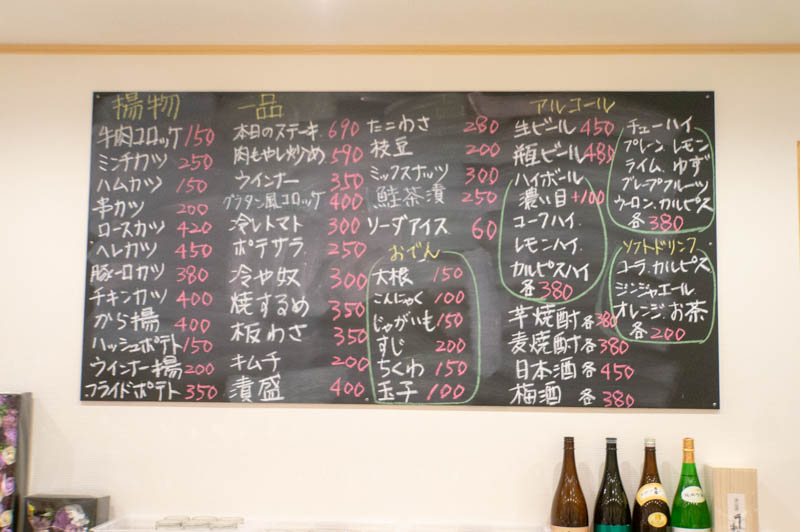 揚物
牛肉コロッケ 150
ミンチカツ 250
ハムカツ 150
串カツ 200
ロースカツ 420
ヘレカツ 450
豚一口カツ 380
チキンカツ 400
から揚 400
ハッシュポテト 150
ウインナー揚 200
フライドポテト 350
一品
本日のステーキ 690
肉もやし炒め 590
ウインナー 350
グラタン風コロッケ 400
冷しトマト 300
ポテサラ 250
冷や奴 300
焼するめ 350
板わさ 350
キムチ 200
漬盛 400
たこわさ 280
枝豆 200
ミックスナッツ 300
鮭茶漬 250
ソーダアイス 60
おでん
大根 150
こんにゃく 100
じゃがいも 150
すじ 200
ちくわ 150
玉子 100
アルコール
生ビール 450
瓶ビール 480
ハイボール
濃い目 +100
コークハイ
レモンハイ
カルピスハイ
各380
芋焼酎 各380
麦焼酎 各380
日本酒 各450
梅酒 各380
チューハイ
プレーン、レモン
ライム、ゆず
グレープフルーツ
ウーロン、カルピス
各380
ソフトドリンク
コーラ、カルピス
ジンジャエール
オレンジ、お茶
各200